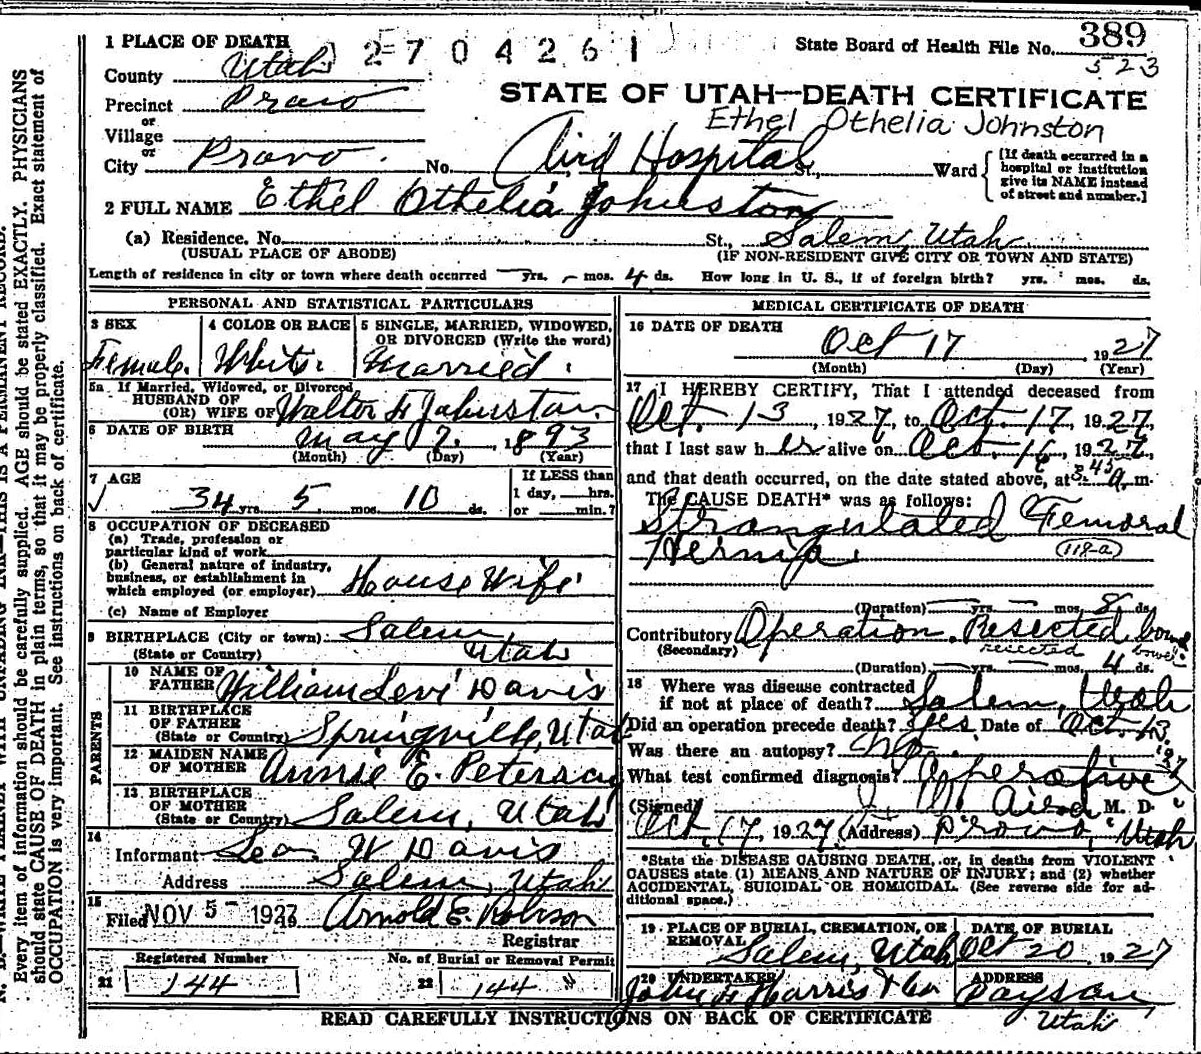 1 PLACE OF DEATH
2704261
State Board of Health File No. 389
523
County Utah
Precinct Provo
or
Village
or
City Provo. No. Aird Hospital St., Ward
[If death occurred in a hospital or institution give its NAME instead of street and number.]
STATE OF UTAH—DEATH CERTIFICATE
Ethel Othelia Johnston
2 FULL NAME Ethel Othelia Johnston
(a) Residence. No. St., Salem, Utah
(USUAL PLACE OF ABODE) (IF NON-RESIDENT GIVE CITY OR TOWN AND STATE)
Length of residence in city or town where death occurred — yrs. – mos. 4 ds. How long in U. S., if of foreign birth? yrs. mos. ds.
PERSONAL AND STATISTICAL PARTICULARS
3 SEX
Female.
4 COLOR OR RACE
White.
5 SINGLE, MARRIED, WIDOWED, OR DIVORCED (Write the word)
Married.
5a If Married, Widowed, or Divorced
HUSBAND OF
(OR) WIFE OF Walter F Johnston.
6 DATE OF BIRTH May 7. 1893
(Month) (Day) (Year)
7 AGE
34 yrs. 5 mos. 10 ds.
If LESS than
1 day, hrs.
or min.?
8 OCCUPATION OF DECEASED
(a) Trade, profession or
particular kind of work
(b) General nature of industry,
business, or establishment in
which employed (or employer) House Wife
(c) Name of Employer
9 BIRTHPLACE (City or town) Salem,
(State or Country) Utah
PARENTS
10 NAME OF
FATHER William Levi Davis
11 BIRTHPLACE
OF FATHER
(State or Country) Springville, Utah
12 MAIDEN NAME
OF MOTHER Annie E. Peterson
13 BIRTHPLACE
OF MOTHER
(State or Country) Salem, Utah
14
Informant Leo. W Davis
Address Salem, Utah
15
Filed NOV 5- 1927 Arnold E. Robison
Registrar
Registered Number
21 144
No. of Burial or Removal Permit
22 144
MEDICAL CERTIFICATE OF DEATH
16 DATE OF DEATH
Oct 17, 1927
(Month) (Day) (Year)
17 I HEREBY CERTIFY, That I attended deceased from
Oct. 13, 1927, to Oct. 17, 1927,
that I last saw h er alive on Oct. 16, 1927,
and that death occurred, on the date stated above, at 3:45 a. m.
The CAUSE DEATH* was as follows:
Strangulated Femoral
Hernia. 118-a
(Duration) — yrs. — mos. 8 ds.
Contributory Operation. Resected bowel
(Secondary) resected bowel
(Duration) — yrs. — mos. 4 ds.
18 Where was disease contracted
if not at place of death? Salem, Utah
Did an operation precede death? Yes. Date of Oct. 13, 1927
Was there an autopsy? No.
What test confirmed diagnosis? Operative
(Signed) J. W. Aird M. D.
Oct. 17, 1927 (Address) Provo, Utah
*State the DISEASE CAUSING DEATH, or, in deaths from VIOLENT
CAUSES state (1) MEANS AND NATURE OF INJURY; and (2) whether
ACCIDENTAL, SUICIDAL OR HOMICIDAL. (See reverse side for additional space.)
19. PLACE OF BURIAL, CREMATION, OR REMOVAL
Salem, Utah
DATE OF BURIAL
Oct 20 1927
20 UNDERTAKER
John F Harris & Co
ADDRESS
Payson
Utah
READ CAREFULLY INSTRUCTIONS ON BACK OF CERTIFICATE
N. B.—WRITE PLAINLY WITH UNFADING INK—THIS IS A PERMANENT RECORD.
Every item of information should be carefully supplied. AGE should be stated EXACTLY. PHYSICIANS
should state CAUSE OF DEATH in plain terms, so that it may be properly classified. Exact statement of
OCCUPATION is very important. See instructions on back of certificate.